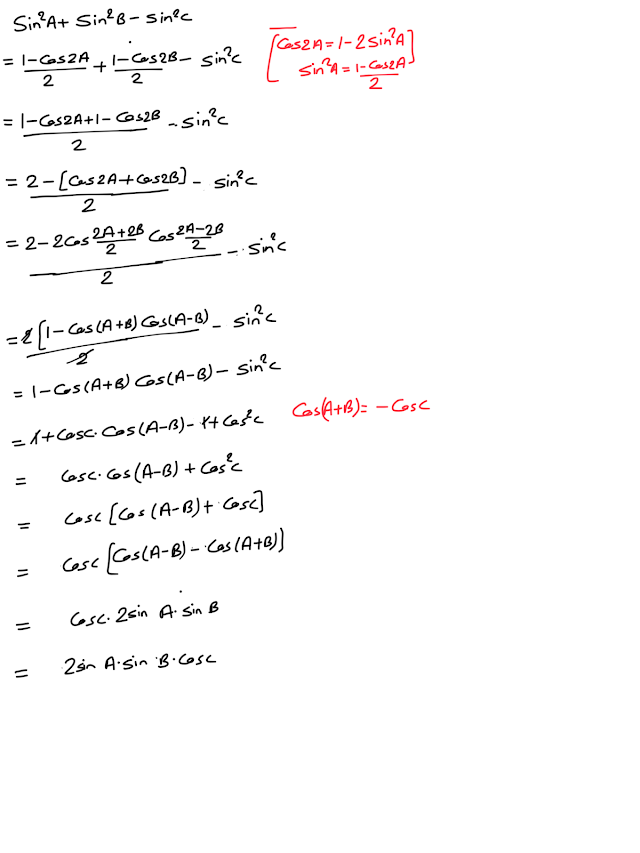 Sin²A + Sin²B - Sin²C
= (1-Cos2A)/2 + (1-Cos2B)/2 - Sin²C [Cos2A = 1-2Sin²A]
[Sin²A = (1-Cos2A)/2]
= (1-Cos2A+1-Cos2B)/2 - Sin²C
= (2-[Cos2A+Cos2B])/2 - Sin²C
= (2-2Cos (2A+2B)/2 Cos (2A-2B)/2)/2 - Sin²C
= 2[1-Cos(A+B) Cos(A-B)/2 - Sin²C
= 1-Cos(A+B) Cos(A-B) - Sin²C
= 1+CosC. Cos(A-B) - 1+Cos²C Cos(A+B) = -CosC
= CosC. Cos(A-B) + Cos²C
= CosC [Cos(A-B) + CosC]
= CosC [Cos(A-B) - Cos(A+B)]
= CosC. 2Sin A. Sin B
= 2Sin A. Sin B. CosC